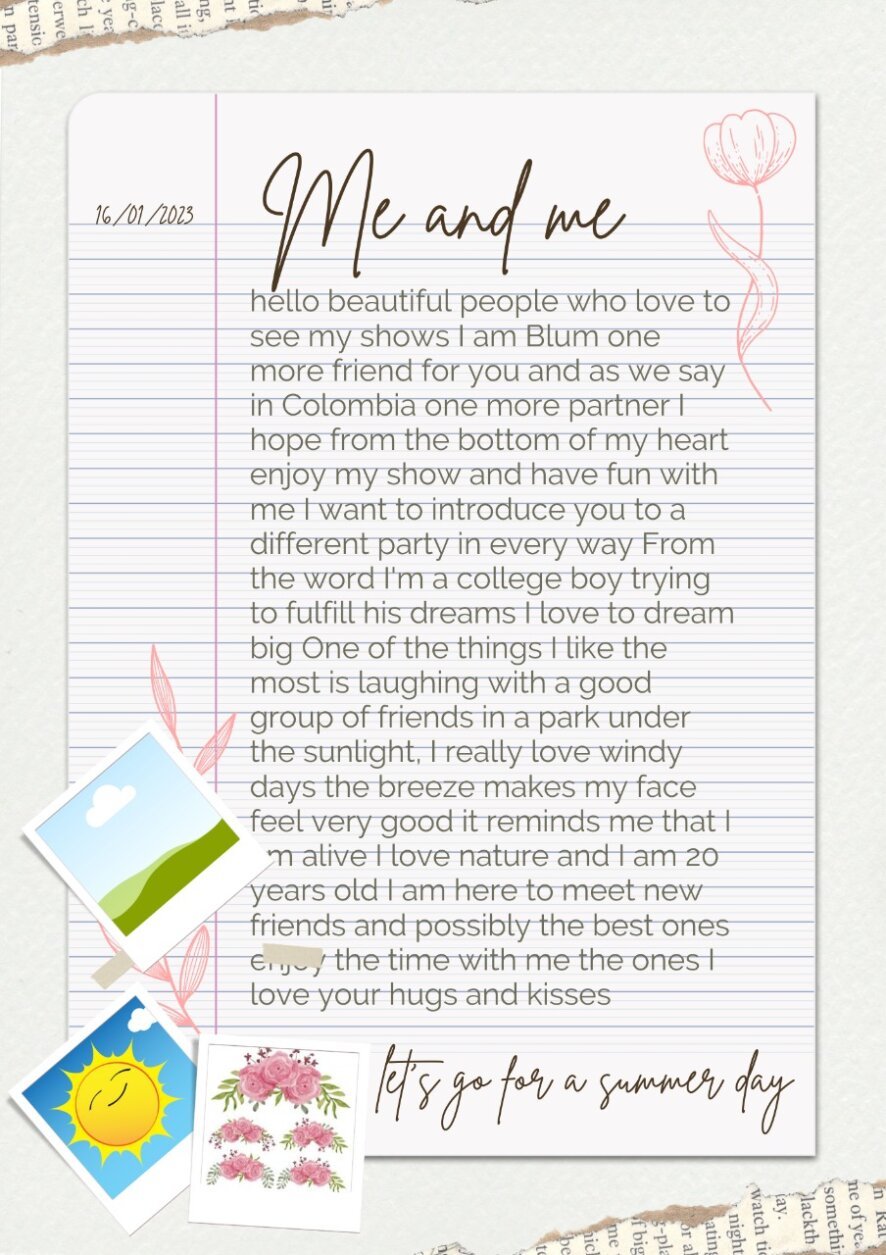 16/01/2023
Me and me
hello beautiful people who love to
see my shows I am Blum one
more friend for you and as we say
in Colombia one more partner I
hope from the bottom of my heart
enjoy my show and have fun with
me I want to introduce you to a
different party in every way From
the word I'm a college boy trying
to fulfill his dreams I love to dream
big One of the things I like the
most is laughing with a good
group of friends in a park under
the sunlight, I really love windy
days the breeze makes my face
feel very good it reminds me that I
am alive I love nature and I am 20
years old I am here to meet new
friends and possibly the best ones
enjoy the time with me the ones I
love your hugs and kisses
let's go for a summer day